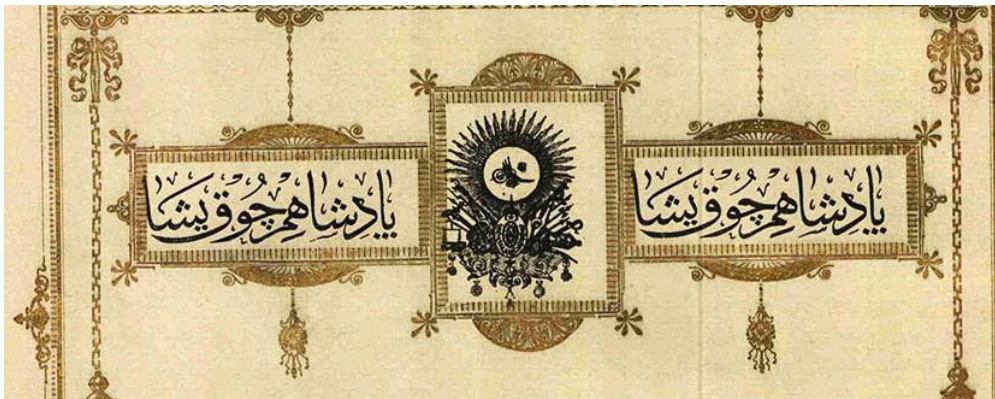 پادشاهم چوق یشا
پادشاهم چوق یشا